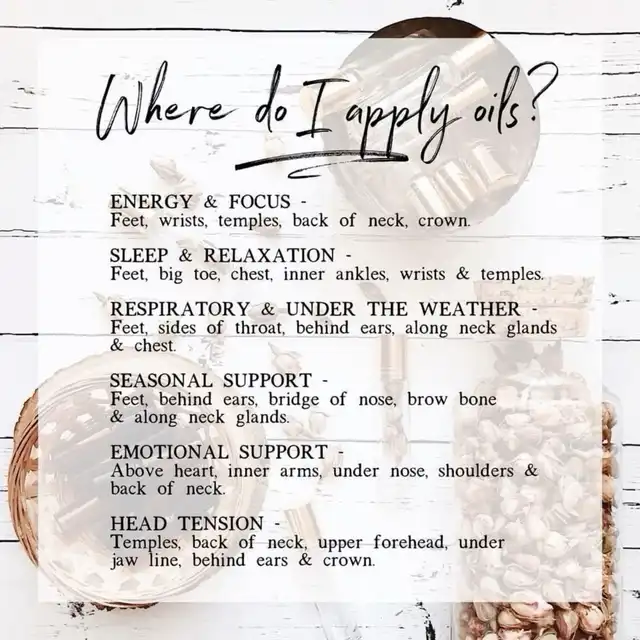 Where do I apply oils?
ENERGY & FOCUS -
Feet, wrists, temples, back of neck, crown.
SLEEP & RELAXATION -
Feet, big toe, chest, inner ankles, wrists & temples.
RESPIRATORY & UNDER THE WEATHER -
Feet, sides of throat, behind ears, along neck glands
& chest.
SEASONAL SUPPORT -
Feet, behind ears, bridge of nose, brow bone
& along neck glands.
EMOTIONAL SUPPORT -
Above heart, inner arms, under nose, shoulders &
back of neck.
HEAD TENSION -
Temples, back of neck, upper forehead, under
jaw line, behind ears & crown.